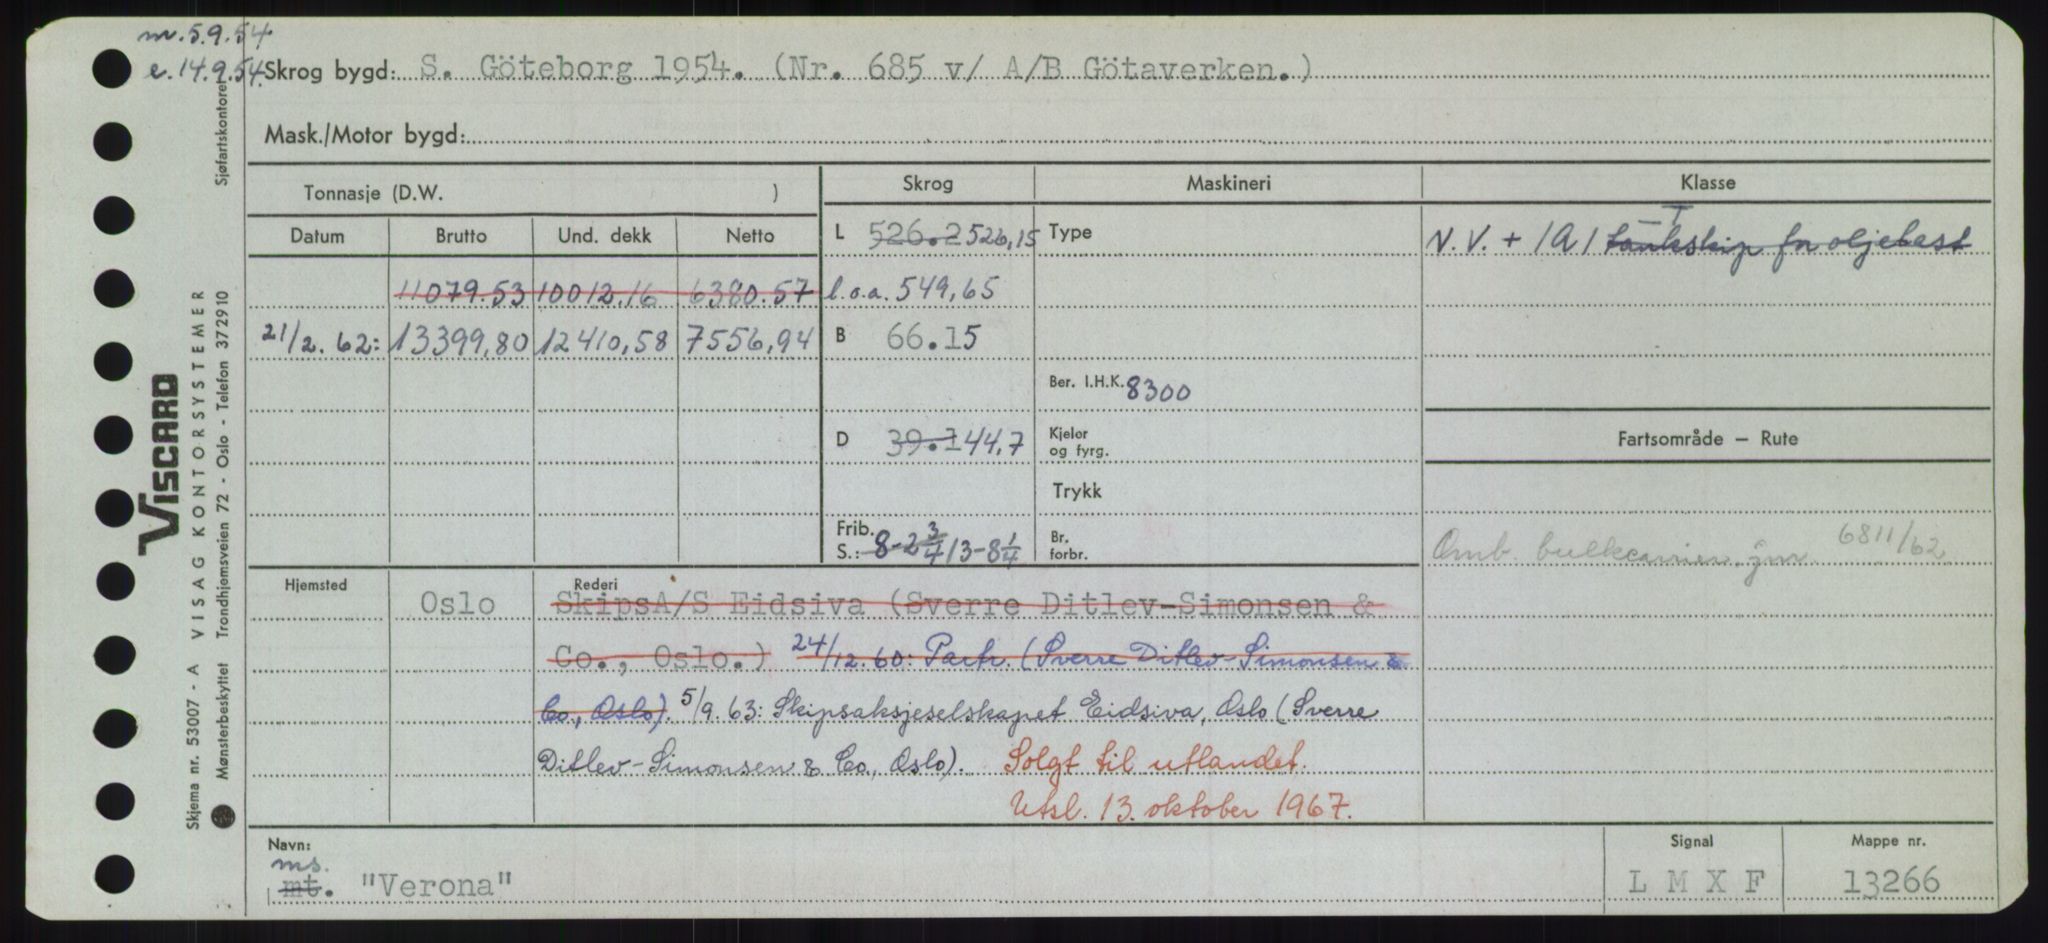 m. 5.9.54
e. 14.9.54.
Skrog bygd: S. Göteborg 1954. (Nr. 685 v/ A/B Götaverken.)
Mask./Motor bygd:
Tonnasje (D.W. )
Skrog
Maskineri
Klasse
Datum Brutto Und. dekk Netto
L 526.2 526,15
Type
N.V. + 1A1 tankskip for oljelast
T
11079.53 10012.16 6380.57
l.o.a. 549,65
21/2. 62: 13399,80 12410,58 7556,94
B 66.15
Ber. I.H.K. 8300
D 39.1 44,7
Kjeler
og fyrg.
Fartsområde – Rute
Trykk
Frib.
S.: 8-2 3/4 13-8 1/4
Br.
forbr.
Omb. bulkcarrier. jnr. 6811/62
Hjemsted
Oslo
Rederi
SkipsA/S Eidsiva (Sverre Ditlev-Simonsen &
Co., Oslo.) 24/12.60: Partr. (Sverre Ditlev-Simonsen &
Co., Oslo). 5/9.63: Skipsaksjeselskapet Eidsiva, Oslo (Sverre
Ditlev-Simonsen & Co., Oslo). Solgt til utlandet.
Utsl. 13. oktober 1967.
Navn:
ms.
mt. "Verona"
Signal
L M X F
Mappe nr.
13266
Sjøfartskontoret
VISCARD
VISAG KONTORSYSTEMER
Trondhjemsveien 72 - Oslo - Telefon 372910
Skjema nr. 53007 - A
Mønsterbeskyttet